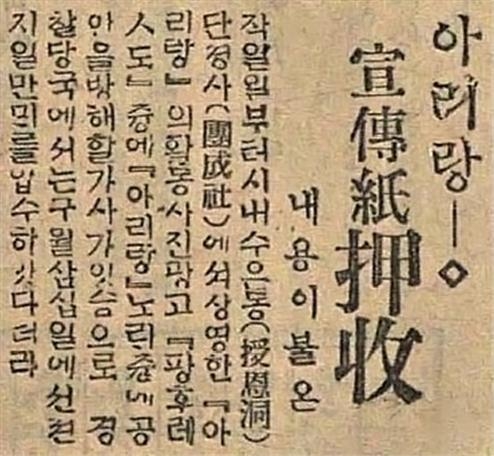 아리랑―◇
宣傳紙押收
내용이불온
작일일부터시내수은동(授恩洞)
단성사(團成社)에서상영한『아
리랑』의활동사진광고『팡후레
ㅅ도』중에『아리랑』노래중에공
안을방해할가사가잇슴으로 경
찰당국에서는구월삼십일에선전
지일만매를압수하얏다더라